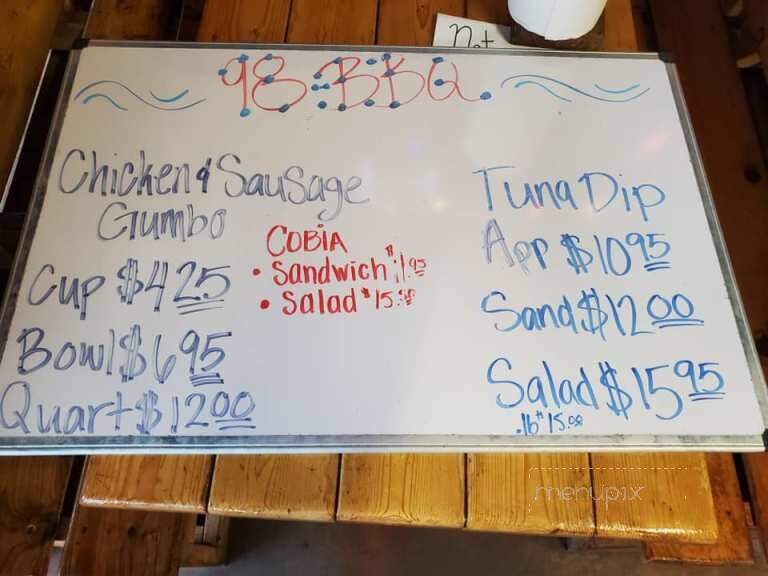 Not
98 BBQ
Chicken & Sausage
Gumbo
Cup $4.25
Bowl $6.95
Quart $12.00
COBIA
• Sandwich $11.95
• Salad $15.
Tuna Dip
App $10.95
Sand $12.00
Salad $15.95
lb 15.00
menupix